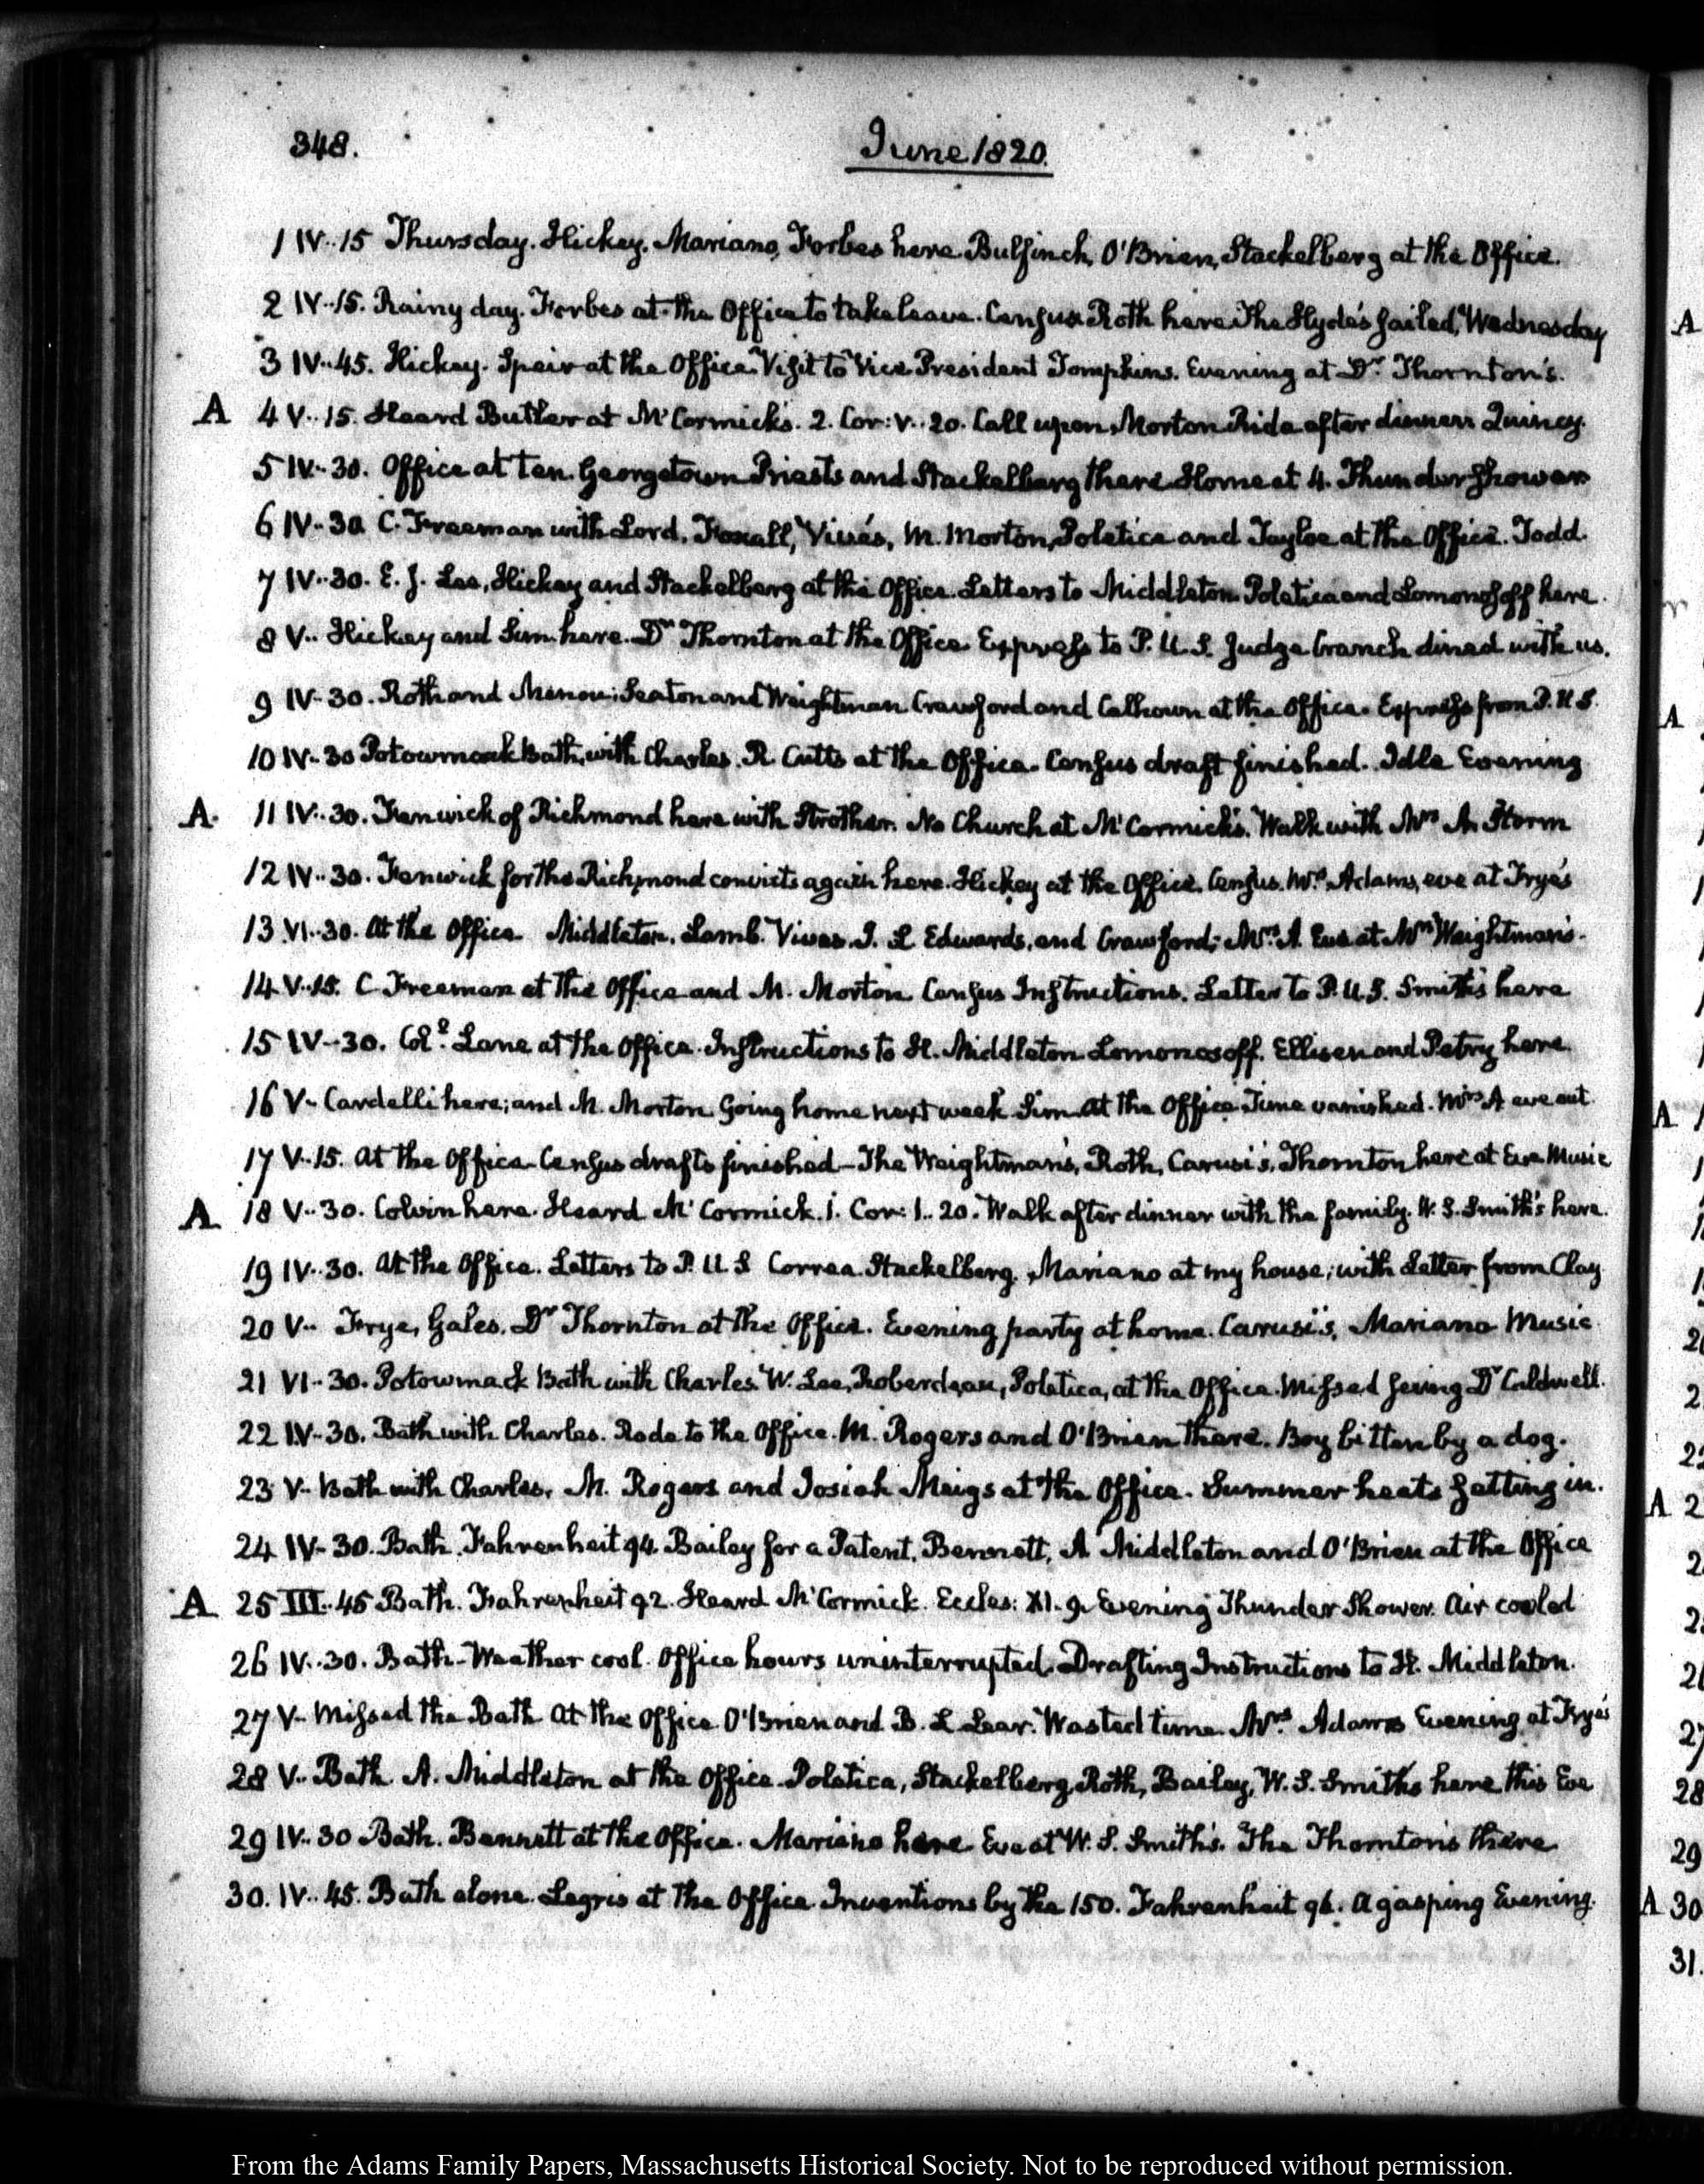 348. June 1820.
1 IV..15 Thursday. Hickey. Mariano, Forbes here. Bulfinch, O'Brien, Stackelberg at the Office.
2 IV..15. Rainy day. Forbes at the Office to take leave. Census. Roth here. The Hyde's sailed, Wednesday
3 IV..45. Hickey. Speir at the Office. Visit to Vice President Tompkins. Evening at Dr. Thornton's.
A 4 V..15. Heard Butler at McCormick's. 2. Cor: V..20. Call upon Morton. Ride after dinner. Quincy.
5 IV..30. Office at ten. Georgetown Priests and Stackelberg there. Home at 4. Thunder shower
6 IV..30 C. Freeman with Lord. Foxall, Vivés, M. Morton, Poletica and Tayloe at the Office. Todd.
7 IV..30. E. J. Lee, Hickey and Stackelberg at the Office. Letters to Middleton. Poletica and Lomonosoff here.
8 V.. Hickey and Sim here. Dr. Thornton at the Office. Express to P. U. S. Judge Cranch dined with us.
9 IV..30. Roth and Menou; Seaton and Weightman. Crawford and Calhoun at the Office. Express from P. U S.
10 IV..30 Potowmack Bath, with Charles. R Cutts at the Office. Census draft finished. Idle Evening
A. 11 IV..30. Fenwick of Richmond here with Strother. No Church at McCormick's. Walk with Mrs A. Storm
12 IV..30. Fenwick for the Richmond convicts again here. Hickey at the Office. Census. Mrs. Adams, eve at Frye's
13 VI..30. At the Office Middleton. Lamb. Vives. J. L Edwards, and Crawford; Mrs. A. Eve at Mrs Weightman's.
14 V..15. C Freeman at the Office and M. Morton. Census Instructions. Letter to P. U. S. Smith's here
15 IV..30. Coll. Lane at the Office. Instructions to H. Middleton. Lomonosoff. Ellisen and Petry here.
16 V.. Cardelli here; and M. Morton. Going home next week. Sim at the Office. Time vanished. Mrs A eve out.
17 V..15. At the Office. Census drafts finished—The Weightman's, Roth, Carusi's, Thornton here at Eve Music
A 18 V..30. Colvin here. Heard McCormick. 1. Cor: 1..20. Walk after dinner with the family. W. S. Smith's here.
19 IV..30. At the Office. Letters to P. U S Correa. Stackelberg. Mariano at my house; with Letter from Clay
20 V.. Frye, Gales. Dr Thornton at the Office. Evening party at home. Carusi's, Mariano Music.
21 VI..30. Potowmack Bath with Charles. W. Lee, Roberdeau, Poletica, at the Office. Missed seeing Dr Caldwell.
22 IV..30. Bath with Charles. Rode to the Office. M. Rogers and O'Brien there. Boy bitten by a dog.
23 V.. Bath with Charles. M. Rogers and Josiah Meigs at the Office. Summer heats setting in.
24 IV..30. Bath. Fahrenheit 94. Bailey for a Patent. Bennett, A Middleton and O'Brien at the Office
A 25 III..45 Bath. Fahrenheit 92. Heard McCormick. Eccles: XI..9. Evening Thunder Shower. Air cooled
26 IV..30. Bath. Weather cool. Office hours uninterrupted. Drafting Instructions to H. Middleton.
27 V.. Missed the Bath. At the Office O'Brien and B. L Lear. Wasted time. Mrs. Adams Evening at Frye's
28 V.. Bath. A. Middleton at the Office. Poletica, Stackelberg, Roth, Bailey, W. S. Smiths here this Eve
29 IV..30 Bath. Bennett at the Office. Mariano here. Eve at W. S. Smith's. The Thornton's there
30. IV..45. Bath alone. Legris at the Office. Inventions by the 150. Fahrenheit 96. A gasping Evening.
From the Adams Family Papers, Massachusetts Historical Society. Not to be reproduced without permission.